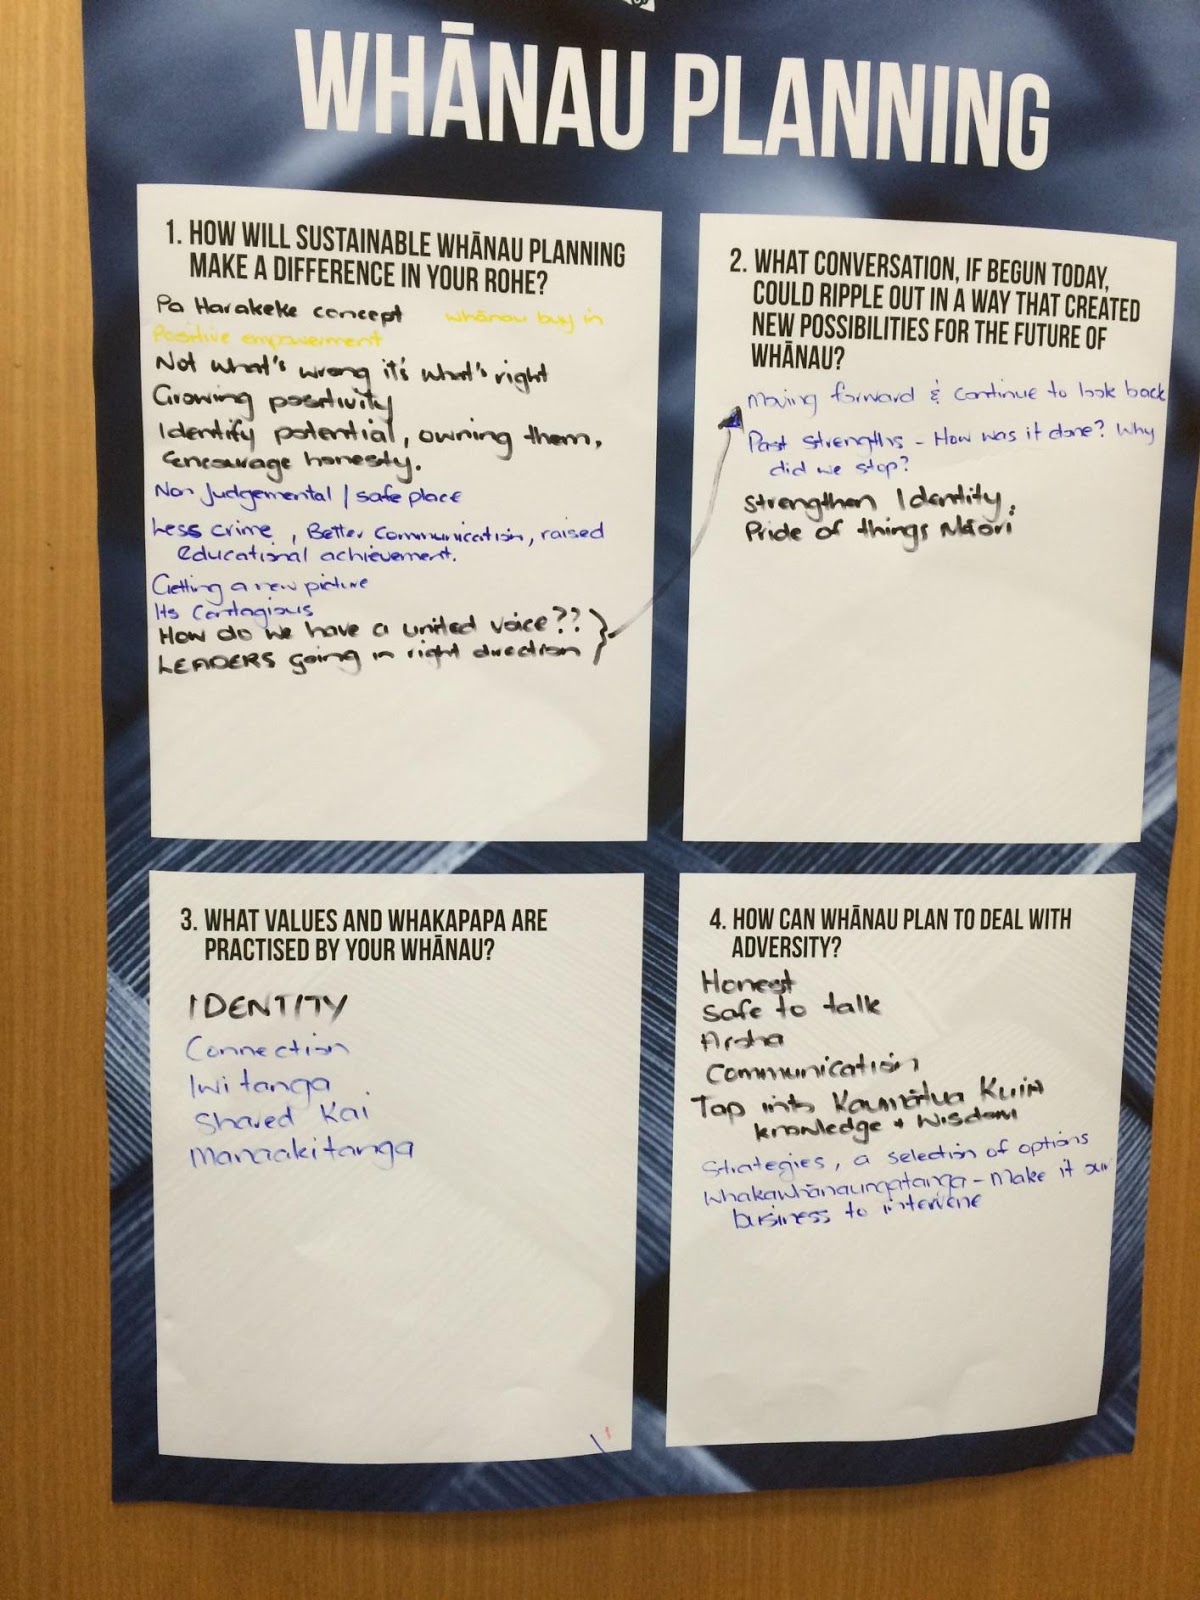 WHĀNAU PLANNING
1. HOW WILL SUSTAINABLE WHĀNAU PLANNING
MAKE A DIFFERENCE IN YOUR ROHE?
Pa Harakeke concept whānau buy in
Positive empowerment
Not what's wrong it's what's right
Growing positivity
Identify potential, owning them,
Encourage honesty.
Non Judgemental / safe place
Less crime, Better Communication, raised
educational achievement.
Getting a new picture
Its Contagious
How do we have a united voice??
LEADERS going in right direction
2. WHAT CONVERSATION, IF BEGUN TODAY,
COULD RIPPLE OUT IN A WAY THAT CREATED
NEW POSSIBILITIES FOR THE FUTURE OF
WHĀNAU?
Moving forward & continue to look back
Past strengths - How was it done? Why
did we stop?
Strengthen Identity.
Pride of things Māori
3. WHAT VALUES AND WHAKAPAPA ARE
PRACTISED BY YOUR WHĀNAU?
IDENTITY
Connection
Iwitanga
Shared Kai
Manaakitanga
4. HOW CAN WHĀNAU PLAN TO DEAL WITH
ADVERSITY?
Honest
Safe to talk
Aroha
Communication
Tap into Kaumātua Kuia
knowledge + wisdom
Strategies, a selection of options
Whakawhānaungatanga - Make it our
business to intervene